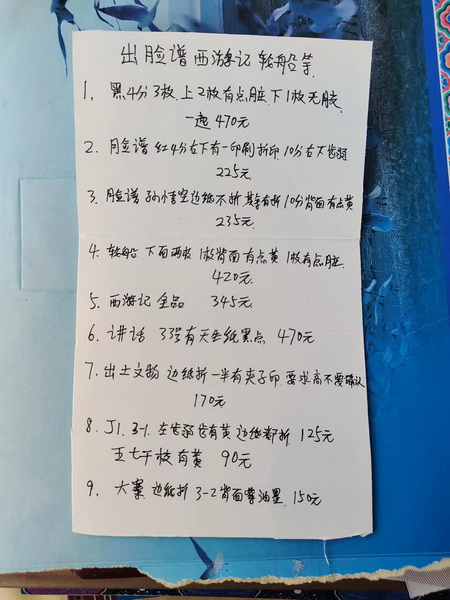 出脸谱西游记轮船等.
1、黑4分3枚.上2枚有点脏,下1枚无脏.
一起 470元
2、脸谱 红4分左下有一印刷折印 10分右下齿弱
225元
3、脸谱 孙悟空边纸不折 其它有折 10分背面有点黄
235元
4、轮船 下面两枚 1枚背面有点黄 1枚有点脏.
420元
5、西游记 全品 345元
6、讲话 33号有天生纸黑点 470元
7、出土文物 边纸折一半有夹子印.要求高不要确认
170元
8、J1.3-1.左齿弱齿有黄 边纸都折 125元
五七干校有黄 90元
9、大寨 边纸折 3-2背面蓝油墨. 150元